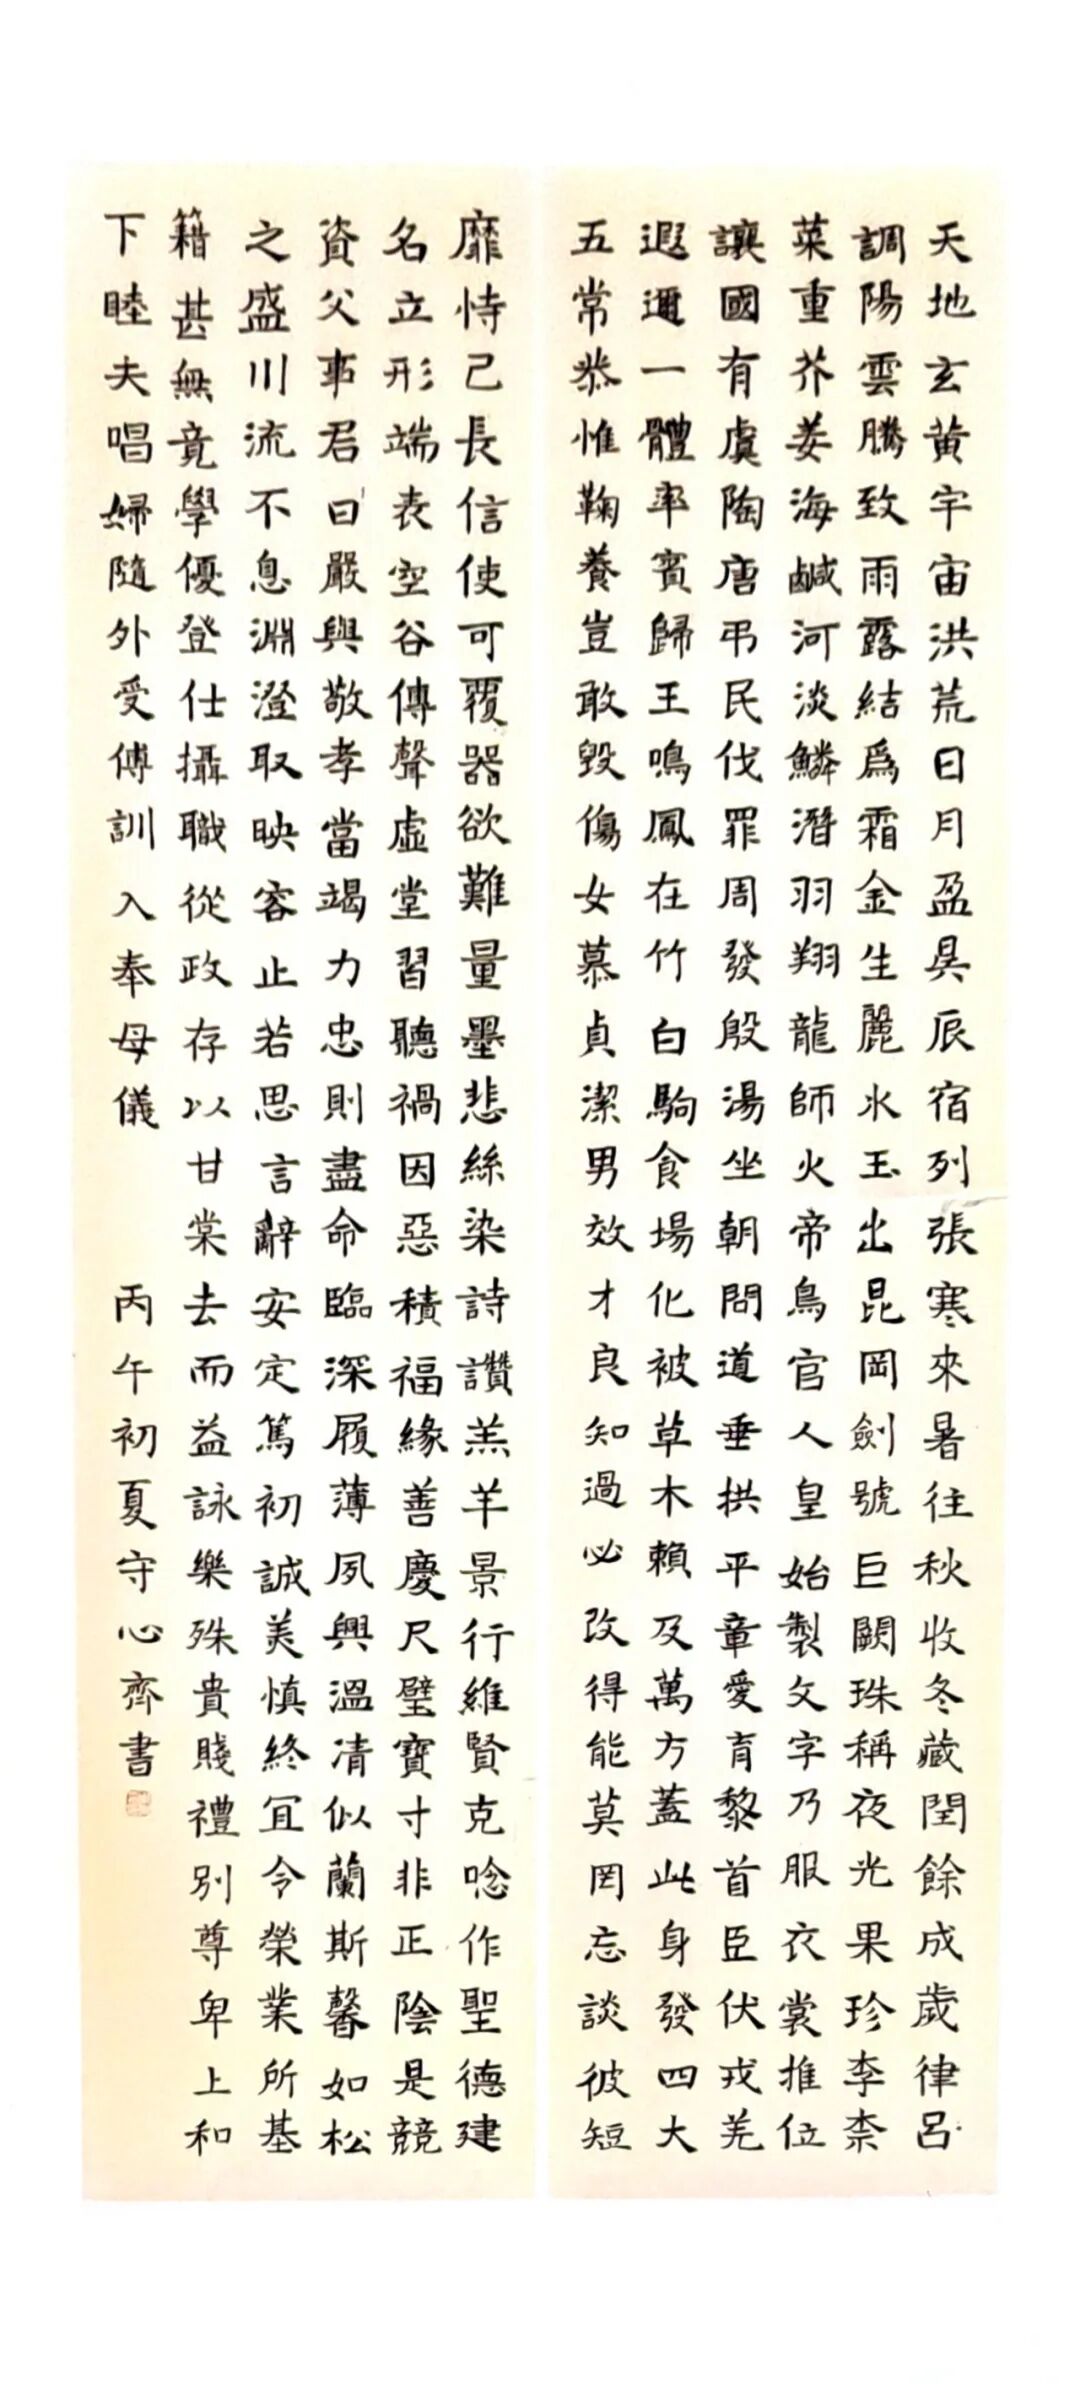 天地玄黃宇宙洪荒日月盈昃辰宿列張寒來暑往秋收冬藏閏餘成歲律呂
調陽雲騰致雨露結爲霜金生麗水玉出昆岡劍號巨闕珠稱夜光果珍李柰
菜重芥姜海鹹河淡鱗潛羽翔龍師火帝鳥官人皇始製文字乃服衣裳推位
讓國有虞陶唐弔民伐罪周發殷湯坐朝問道垂拱平章愛育黎首臣伏戎羌
遐邇一體率賓歸王鳴鳳在竹白駒食場化被草木賴及萬方蓋此身發四大
五常恭惟鞠養豈敢毀傷女慕貞潔男效才良知過必改得能莫罔忘談彼短
靡恃己長信使可覆器欲難量墨悲絲染詩讚羔羊景行維賢克唸作聖德建
名立形端表空谷傳聲虛堂習聽禍因惡積福緣善慶尺璧寶寸非正陰是競
資父事君曰嚴與敬孝當竭力忠則盡命臨深履薄夙興溫凊似蘭斯馨如松
之盛川流不息淵澄取映容止若思言辭安定篤初誠美慎終宜令榮業所基
籍甚無竟學優登仕攝職從政存以甘棠去而益詠樂殊貴賤禮別尊卑上和
下睦夫唱婦隨外受傅訓入奉母儀 丙午初夏守心齊書